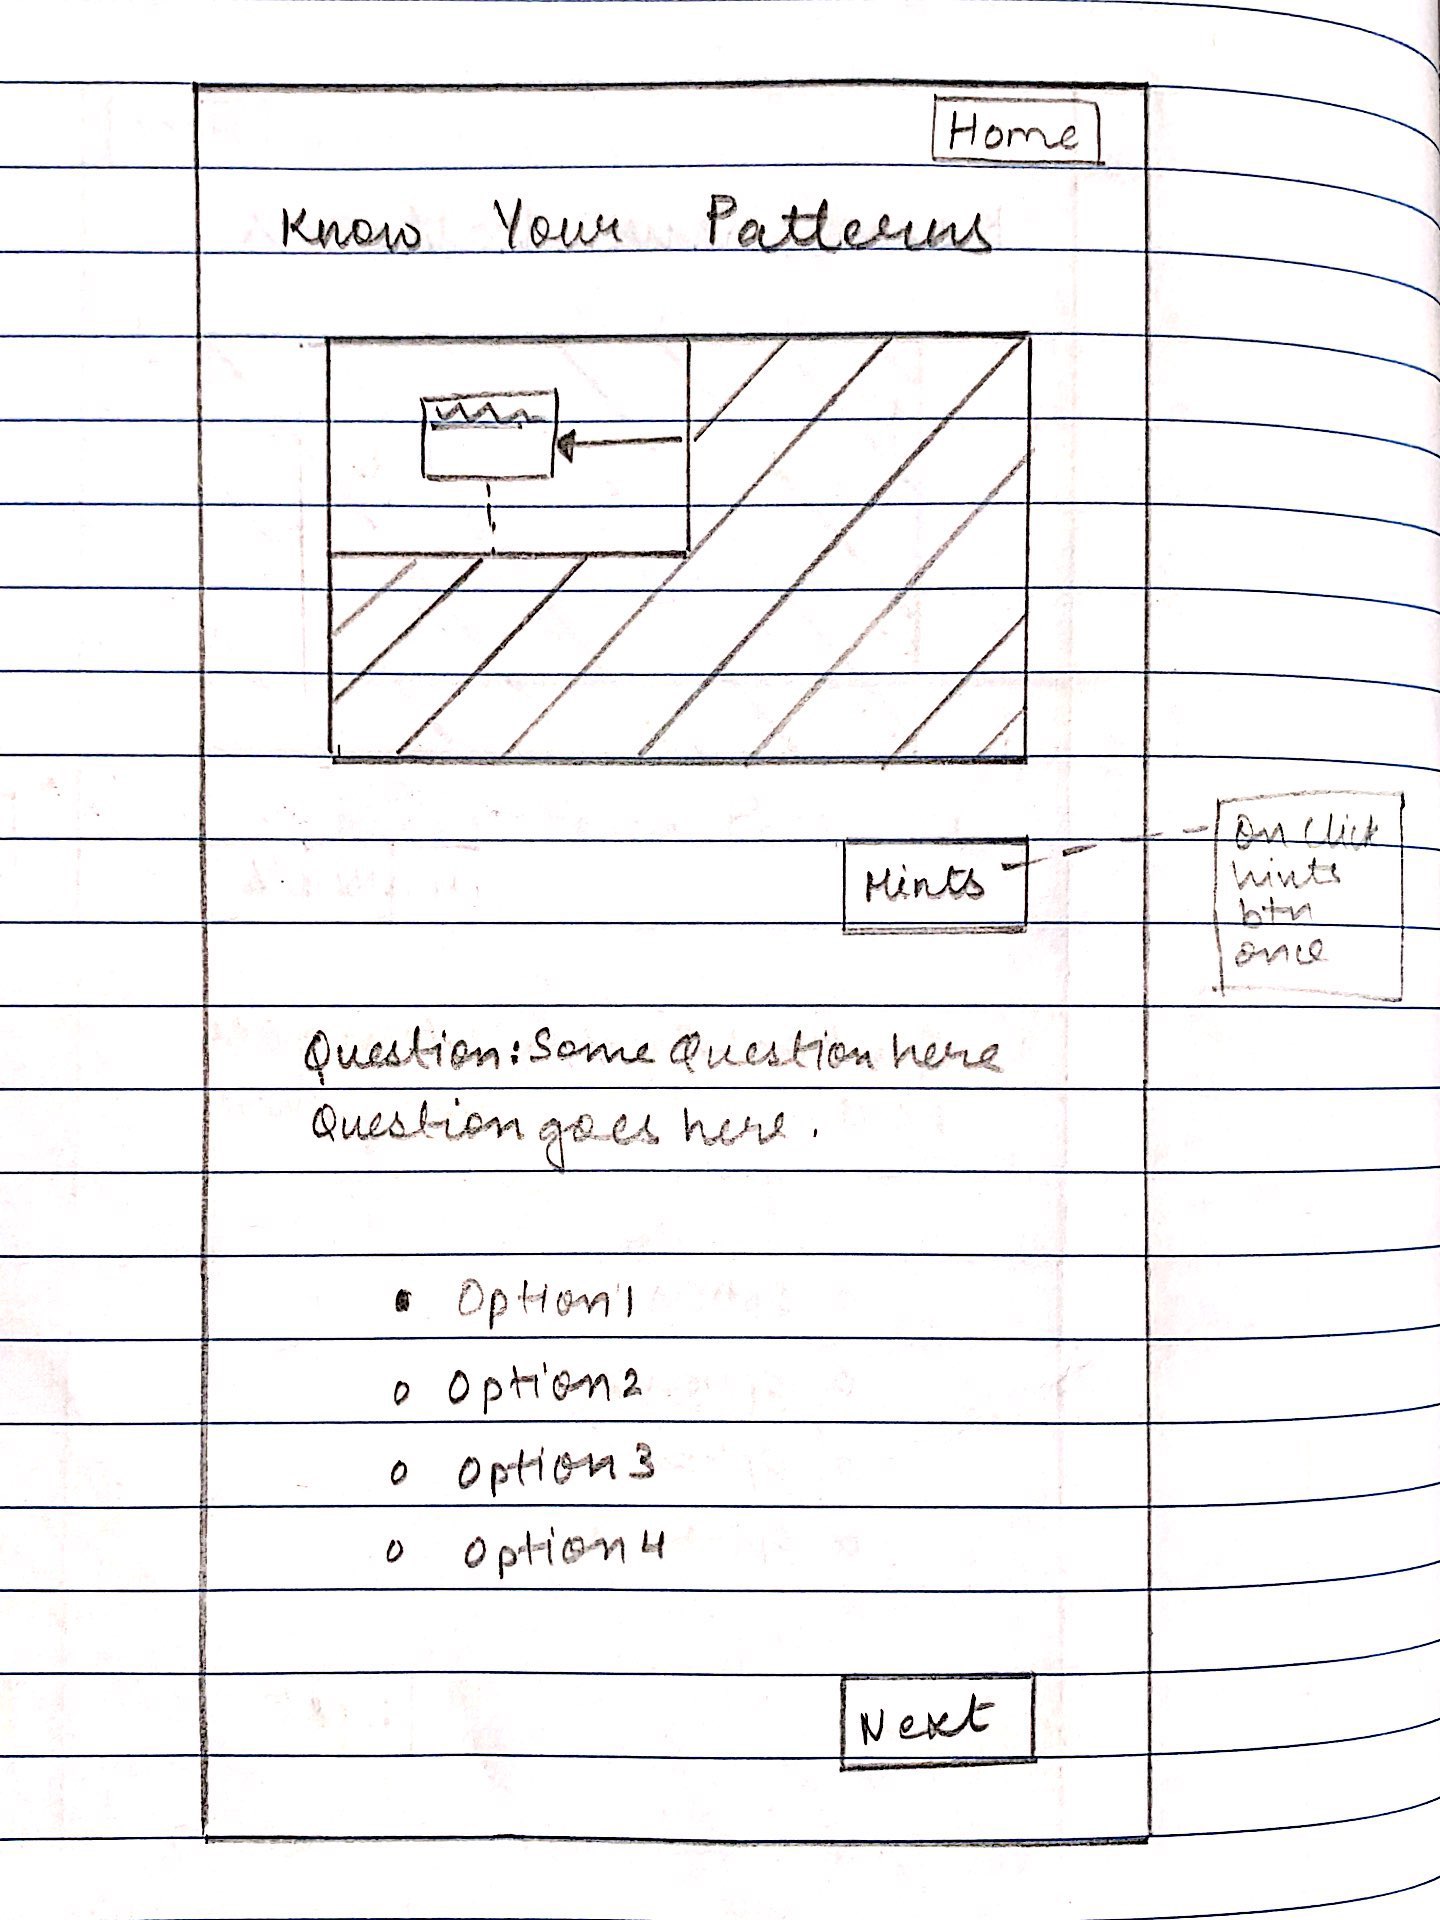 Home
Know Your Patterns
Hints
On Click
hints
btn
once
Question: Some Question here
Question goes here.
Option 1
Option 2
Option 3
Option 4
Next